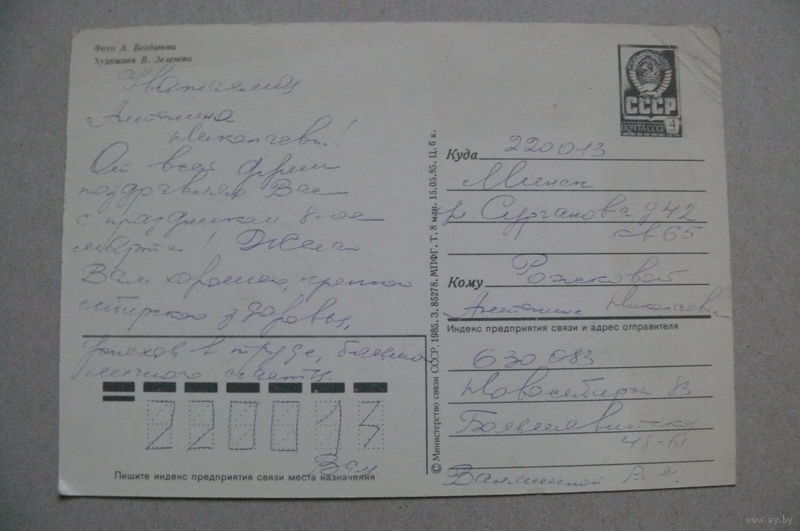 Фото А. Богданова
Художник В. Зеленова
Уважаемая
Антонина
Николаевна!
От всей души
поздравляю Вас
с праздником 8-ое
марта! Желаю
Вам хорошего, крепкого
сибирского здоровья,
успехов в труде, большого
личного счастья
Вал
220013
Пишите индекс предприятия связи места назначения
© Министерство связи СССР. 1985. З. 85278. МПФГ. Т. 8 млн. 15.05.85. Ц. 6 к.
СССР
ПОЧТА СССР 4
Куда 220013
Минск
ул Сурганова д 42
кв 65
Кому Рожковой
Антонине Николаевне
Индекс предприятия связи и адрес отправителя
630083
Новосибирск 83
Большевистская
48-61
В М
www.ay.by